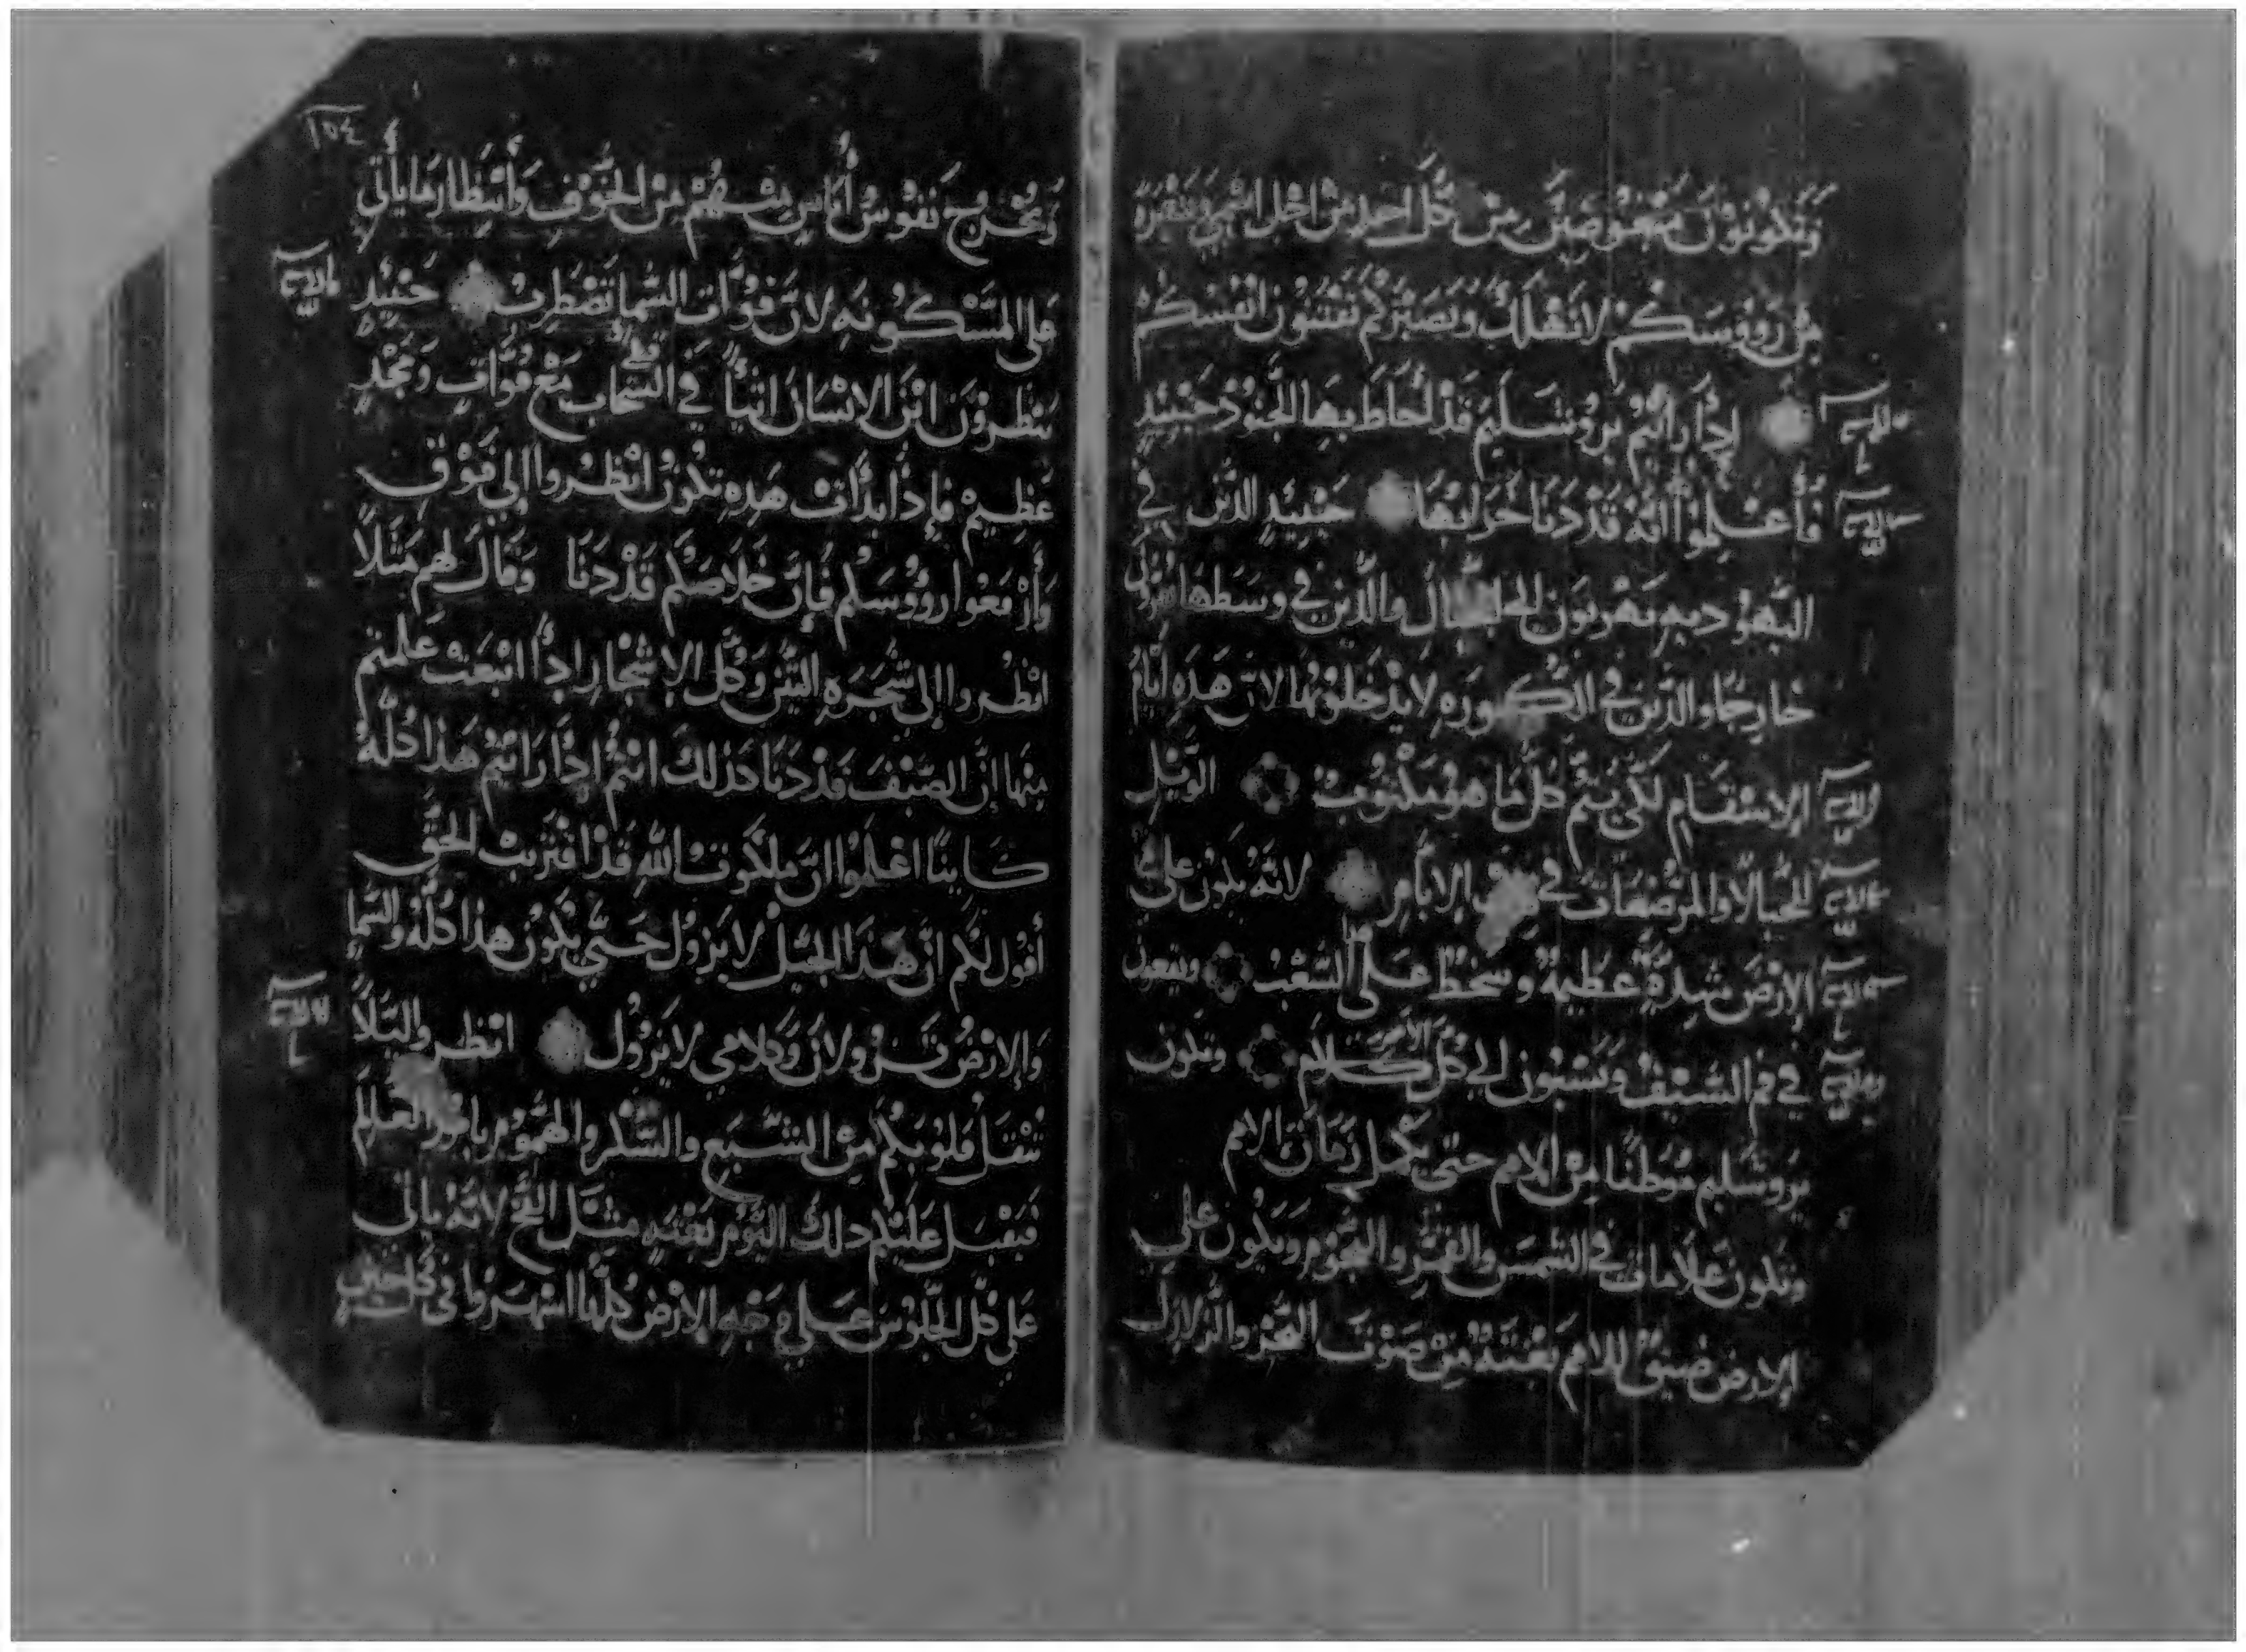 وَتَكونُونَ مَبْغُوضِيَن مِنْ كُلِّ احدٍ مِنْ اجْلِ اسْمِي وَشَعْرَة
مِن رُووُسَكُمْ لا تَهْلك وَبصَبْركُم تقتنون انْفُسَكُم
إذَا رأَيْتُم يَرُوشَليمَ قَدْ أَحَاطَ بِهَا الجنُوُدُ حَيْنيدٍ
فَأعْلِمُوا انَّهُ قَدْ دَنَا خَرَابُهَا حَيْنيِدٍ الذَّين في
اليَهُوُديهِ يَهْربُون الجبَال والذَّين في وسَطهَا
خارجًا والذين في الكُورَهِ لا يَدْخلُونَها لانَّ هَذه أيّامُ
الإنتقَام لكي يَتم كُلّ مَا هو مَكْتوُب الوَيْل
للحُبالا والمرْضعَات في تلك الايَّام لانَّه يكون على
الإرْض شِدةٌ عَظيمةٌ وسخط عَلى الشعْبِ ويقعون
في فم السَّيْف وَيُسْبُون الي كُلّ الامم وتكون
يَروشَليم مَوطئًا مِنْ الامم حتى يكمل زَمَان الامم
وتكون عَلامات في الشمسِ والقمَر والنجُوم وَيَكوُن علي
الإرض ضيقٌ للامم بَغْتَةً مِن صَوْت البَحْر والزلازل
١٥٤
وَتخْرج نَفوْسُ أنَاسٍ مِنْهُمْ مِنْ الخَوْفِ وَأنتِظار مَا يأتي
عَلى المَسْكونهِ لانَّ قوَّات السَّما تضْطَرِبُ حَيْنيِدٍ
يَنْظروُنَ ابْنَ الانْسَانَ اتياً في السَّحَاب مَعْ قوَّاتٍ وَمَجْدٍ
عَظِيمْ فإِذا بَدَأت هَذِهِ تكُون انْظرُوا إلي فَوْق
وَأرْفَعُوا روُوسَكُم فَإنَّ خَلاصَكُم قَدْ دَنَا وَقَال لهم مَثَلاً
انْظُروا إلى شَجَرَهِ التّين وَكُلّ الإشْجارِ إذا انْبَعَتْ عَلمتم
مِنْهَا إنَّ الصَّيْفَ قَدْ دَنَا كَذلكَ انتم إذَا رَاتيْم هَذا كُلّهُ
كَاينًا اعْلَمُوا انَّ مَلَكوت اللهِ قَدْ اقْتَرَبْ الحَق
أقوُل لكُم انّ هَذا الجيْل لا يَزوُل حَتّي يكُونُ هذا كلّهُ والسَّما
وَالإرْضُ تَزُولانَ وَكلامي لا يَزوُل انْظروا ليَلاَّ
تَثقَل قلوُبَكُم مِن الشبَع والسّكْر والهُموُم بامُور العَالم
فَيقْبَل عَلَيْكم ذلكَ اليَوْم بَغْتَه مثل الفخّ لانَّه يأتي
عَلي كُل الجلُوسَ عَلى وَجْهِ الإرْض كُلّهَا اسْهَروا في كُل حِين